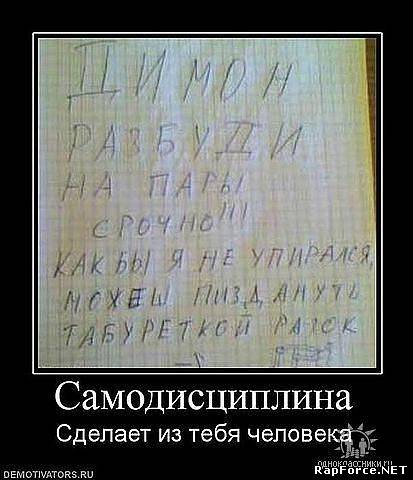 ДИМОН
РАЗБУДИ
НА ПАРЫ
СРОЧНО!!!
КАК БЫ Я НЕ УПИРАЛСЯ,
МОЖЕШ ПИЗДАНУТЬ
ТАБУРЕТКОЙ РАЗОК
Самодисциплина
Сделает из тебя человека
одноклассники.ru
DEMOTIVATORS.RU
RapForce.NET